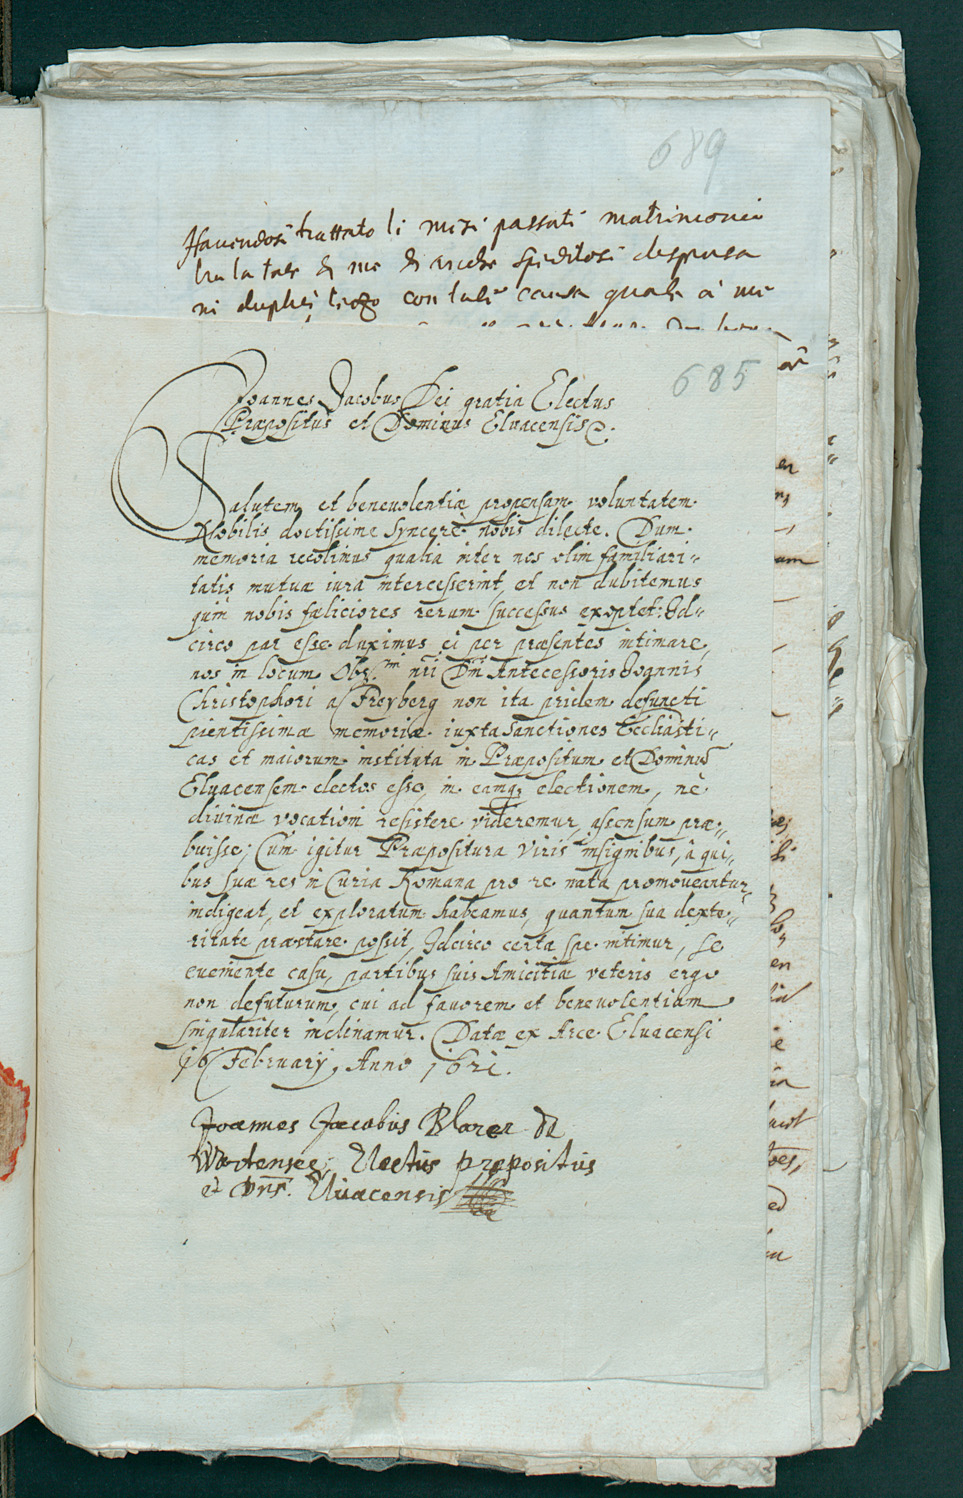 689
Havendosi trattato li mesi passati matrimonio
tra la tale di me
con tale causa quale a me
685
Joannes Jacobus Dei gratia Electus
Præpositus et Dominus Elvacensis
Salutem et benevolentiæ propensam voluntatem.
Nobilis doctissime syncerè nobis dilecte. Dum
memoria recolimus qualia inter nos olim familiari-
tatis mutuæ iura intercesserint, et non dubitemus
quin nobis fæliciores rerum successus exoptet: Id-
circo par esse duximus ei per præsentes intimare,
nos in locum Obs.mi nri Dni Antecessoris Joannis
Christophori a Freyberg non ita pridem defuncti
pientissimæ memoriæ iuxta Sanctiones Ecclīasti-
cas et maiorum instituta in Præpositum et Dominū
Elvacensem electos esse, in eamq; electionem, nè
divinæ vocationi resistere videremur, assensum præ-
buisse; Cum igitur Præpositura viris insignibus, à qui-
bus suæ res in Curia Romana pro re nata promoveantur
indigeat, et exploratum habeamus, quantum sua dexte-
ritate præstare possit, Idcirco certa spe nitimur, se
eveniente casu, partibus suis Amicitiæ veteris ergo
non defuturum, cui ad favorem et benevolentiam
singulariter inclinamur. Datæ ex Arce Elvacensi
16 February, Anno 1621.
Joannes Jacobus Blarer de
Wartensee, Electus præpositus
et Dns. Elvacensis